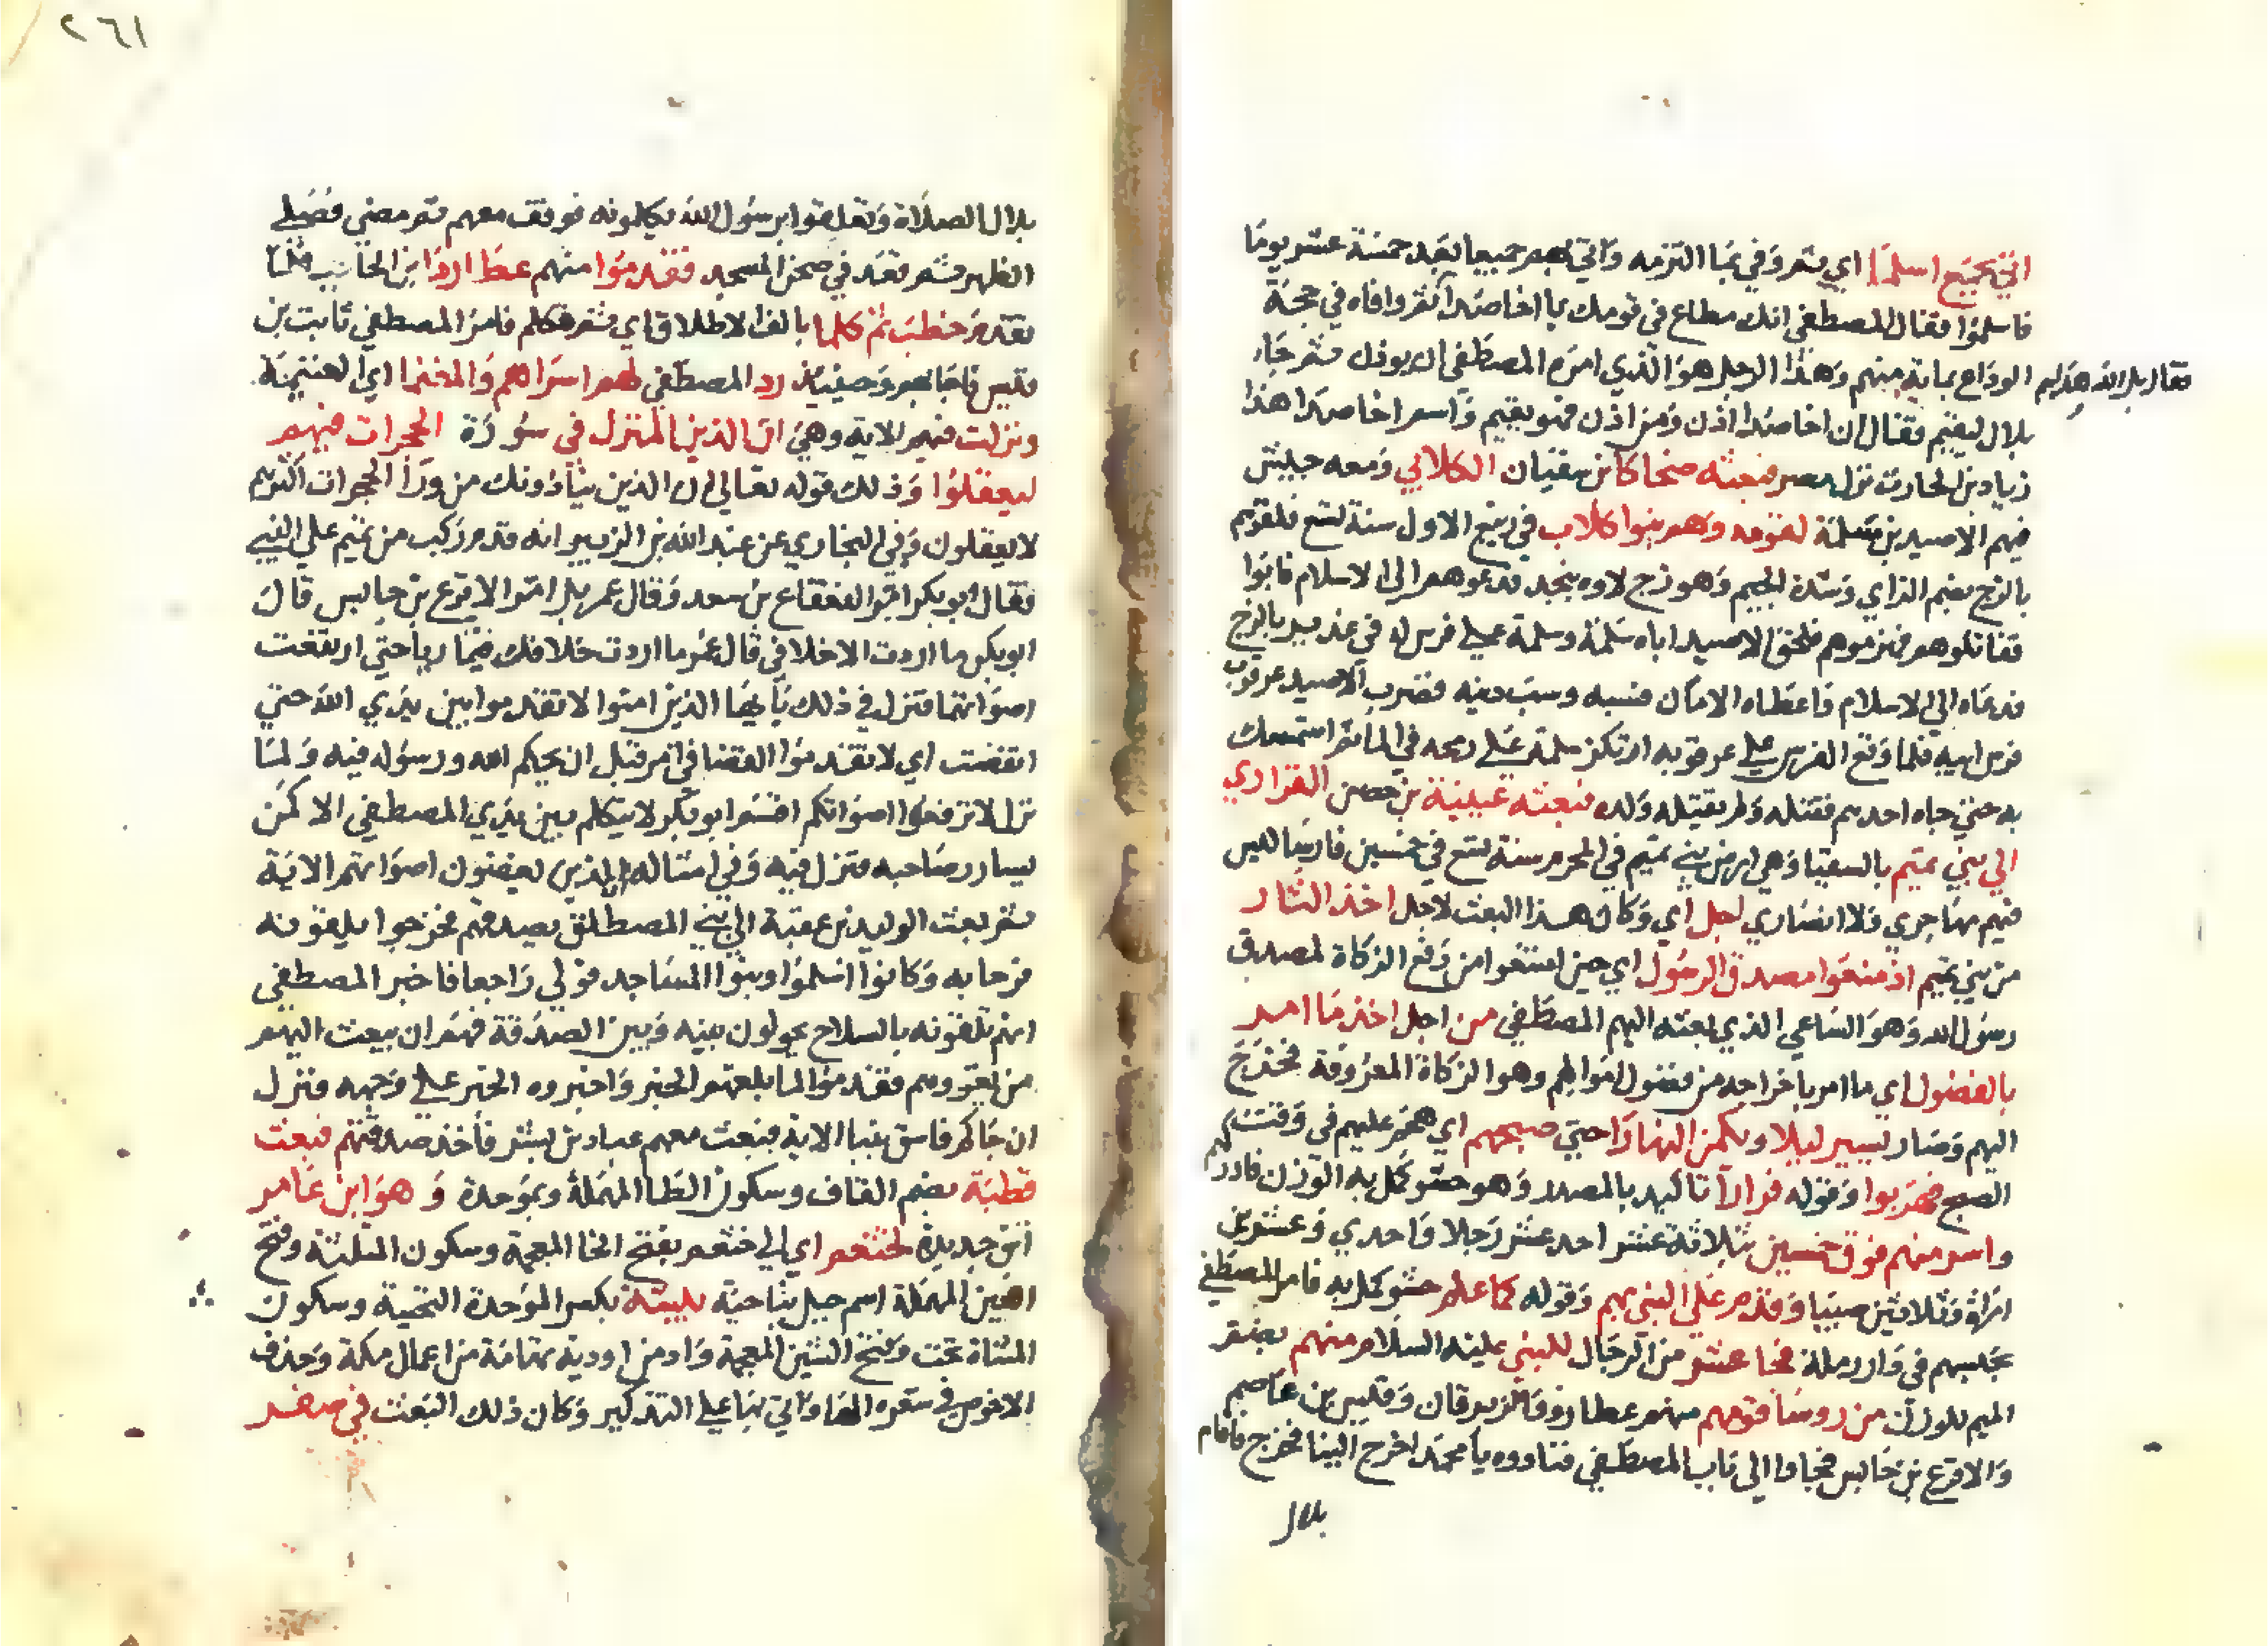 اتي بجميع اسلما اي ثم وفي بما التزمه واتي بهم جميعا بعد خمسة عشر يوما
فاسلموا فقال المصطفي انك مطاع في قومك يا اخا صدا ثم وافاه في حجة
الوداع بماية منهم وهذا الرجل هو الذي امره المصطفي ان يوذن ثم جار
فقال بل الله هداهم
بلال ليقيم فقال ان اخا صدا اذن ومن اذن فهو يقيم واسم اخا صدا هذا
زياد بن الحارث نزل مصر فبعثه ضحاكا بن سفيان الكلابي ومعه جيش
فيهم الاصيد بن سلمة لقومه وهم بنوا كلاب في ربيع الاول سنة تسع فلقوهم
بالزج بضم الزاي وشدة الجيم وهو زج لاوه بنجد فدعوهم الي الاسلام فابوا
فقاتلوهم فهزموهم فلحق الاصيد اباه سلمة وسلمة علي فرس له في غدير بالزج
فدعاه الي الاسلام فاعطاه الامان فسبه وسب دينه فضرب الاصيد عرقوب
فرس ابيه فلما وقع الفرس علي عرقوبه ارتكز سلمة علي رمحه في الما ثم استمسك
به حتي جاه احدهم فقتله ولم يقتله ولده فبعثه عيينة بن حصن الفزاري
الي بني تميم بالسقيا وهي ارض بني تميم في المحرم سنة تسع في خمسين فارسا ليس
فيهم مهاجري ولا انصاري لجل اي وكان هذا البعث لاجل اخذ الثار
من بني تميم اذ منعوا مصدق الرسول اي حين امتنعوا من دفع الزكاة لمصدق
رسول الله وهو الساعي الذي بعثه اليهم المصطفي من اجل اخذ ما امر
بالفضول اي ما امر باخراجه من فضول اموالهم وهو الزكاة المعروفة فخرج
اليهم وصار يسير ليلا ويكمن النهارا حتي صبحهم اي هجم عليهم في وقت
الصبح فهربوا وقوله فرارا تاكيد بالمصدر وهو حشو كمل به الوزن فادركهم
واسر منهم فوق خمسين بثلاثة عشر احد عشر رجلا واحدي وعشرين
امراة وثلاثين صبيا وقدم علي النبي بهم وقوله كما علم حشو كمل به فامر المصطفي
بحبسهم في دار رملة فجا عشر من الرجال للنبي عليه السلام منهم بضم
الميم للوزن من روسا قومهم منهم عطارد والزبرقان وقيس بن عاصم
والاقرع بن حابس فجاوا الي باب المصطفي فنادوه يا محمد اخرج الينا فخرج فاقام
بلال
٢٦١
بلال الصلاة وتعلقوا برسول الله يكلمونه فوقف معهم ثم مضي فصلي
الظهر ثم قعد في صحن المسجد فقدموا منهم عطاردا بن الحاجب فلما
تقدم خطب ثم كلما بالف الاطلاق اي ثم تكلم فامر المصطفي ثابت بن
قيس فاجابهم وحينيذ رد المصطفي لهم اسراهم والمغنما اي الغنيمة
ونزلت فيهم الاية وهي ان الذين المنزل في سورة الحجرات فيهم
ليعقلوا وذلك قوله تعالي ان الذين ينادونك من ورا الحجرات اكثرهم
لا يعقلون وفي البخاري عن عبد الله بن الزبير انه قدم ركب من تميم علي النبي
فقال ابو بكر امر القعقاع بن سعد وقال عمر بل امر الاقرع بن حابس قال
ابو بكر ما اردت الا خلافي قال عمر ما اردت خلافك فتماريا حتي ارتفعت
اصواتهما فنزل في ذلك يا ايها الذين امنوا لا تقدموا بين يدي الله حتي
انقضت اي لا تقدموا القضا في امر قبل ان يحكم الله ورسوله فيه ولما
نزل لا ترفعوا اصواتكم اقسم ابو بكر لا يتكلم بين يدي المصطفي الا كمن
يسارر صاحبه فنزل فيه وفي امثاله ان الذين يغضون اصواتهم الاية
ثم بعث الوليد بن عقبة الي بني المصطلق يصدقهم فخرجوا يلقونه
فرحا به وكانوا اسلموا وبنوا المساجد فولي راجعا فاخبر المصطفي
انهم تلقونه بالسلاح يحولون بينه وبين الصدقة فهم ان يبعث اليهم
من يغزوهم فقدموا لما بلغهم الخبر واخبروه الخبر علي وجهه فنزل
ان جاكم فاسق بنبا الاية فبعث معهم عباد بن بشر فاخذ صدقتهم فبعث
قطبة بضم القاف وسكون الطا المهملة وبموحدة وهو ابن عامر
ابن حديدة لخثعم اي الي خثعم بفتح الخا المعجمة وسكون المثلثة وفتح
العين المهملة اسم جبل بناحية ببيشة بكسر الموحدة التحتية وسكون
المثناة تحت وفتح الشين المعجمة واد من اودية تهامة من اعمال مكة وحذف
الاخوص في شعره الها واتي بنا علي التذكير وكان ذلك البعث في صفر